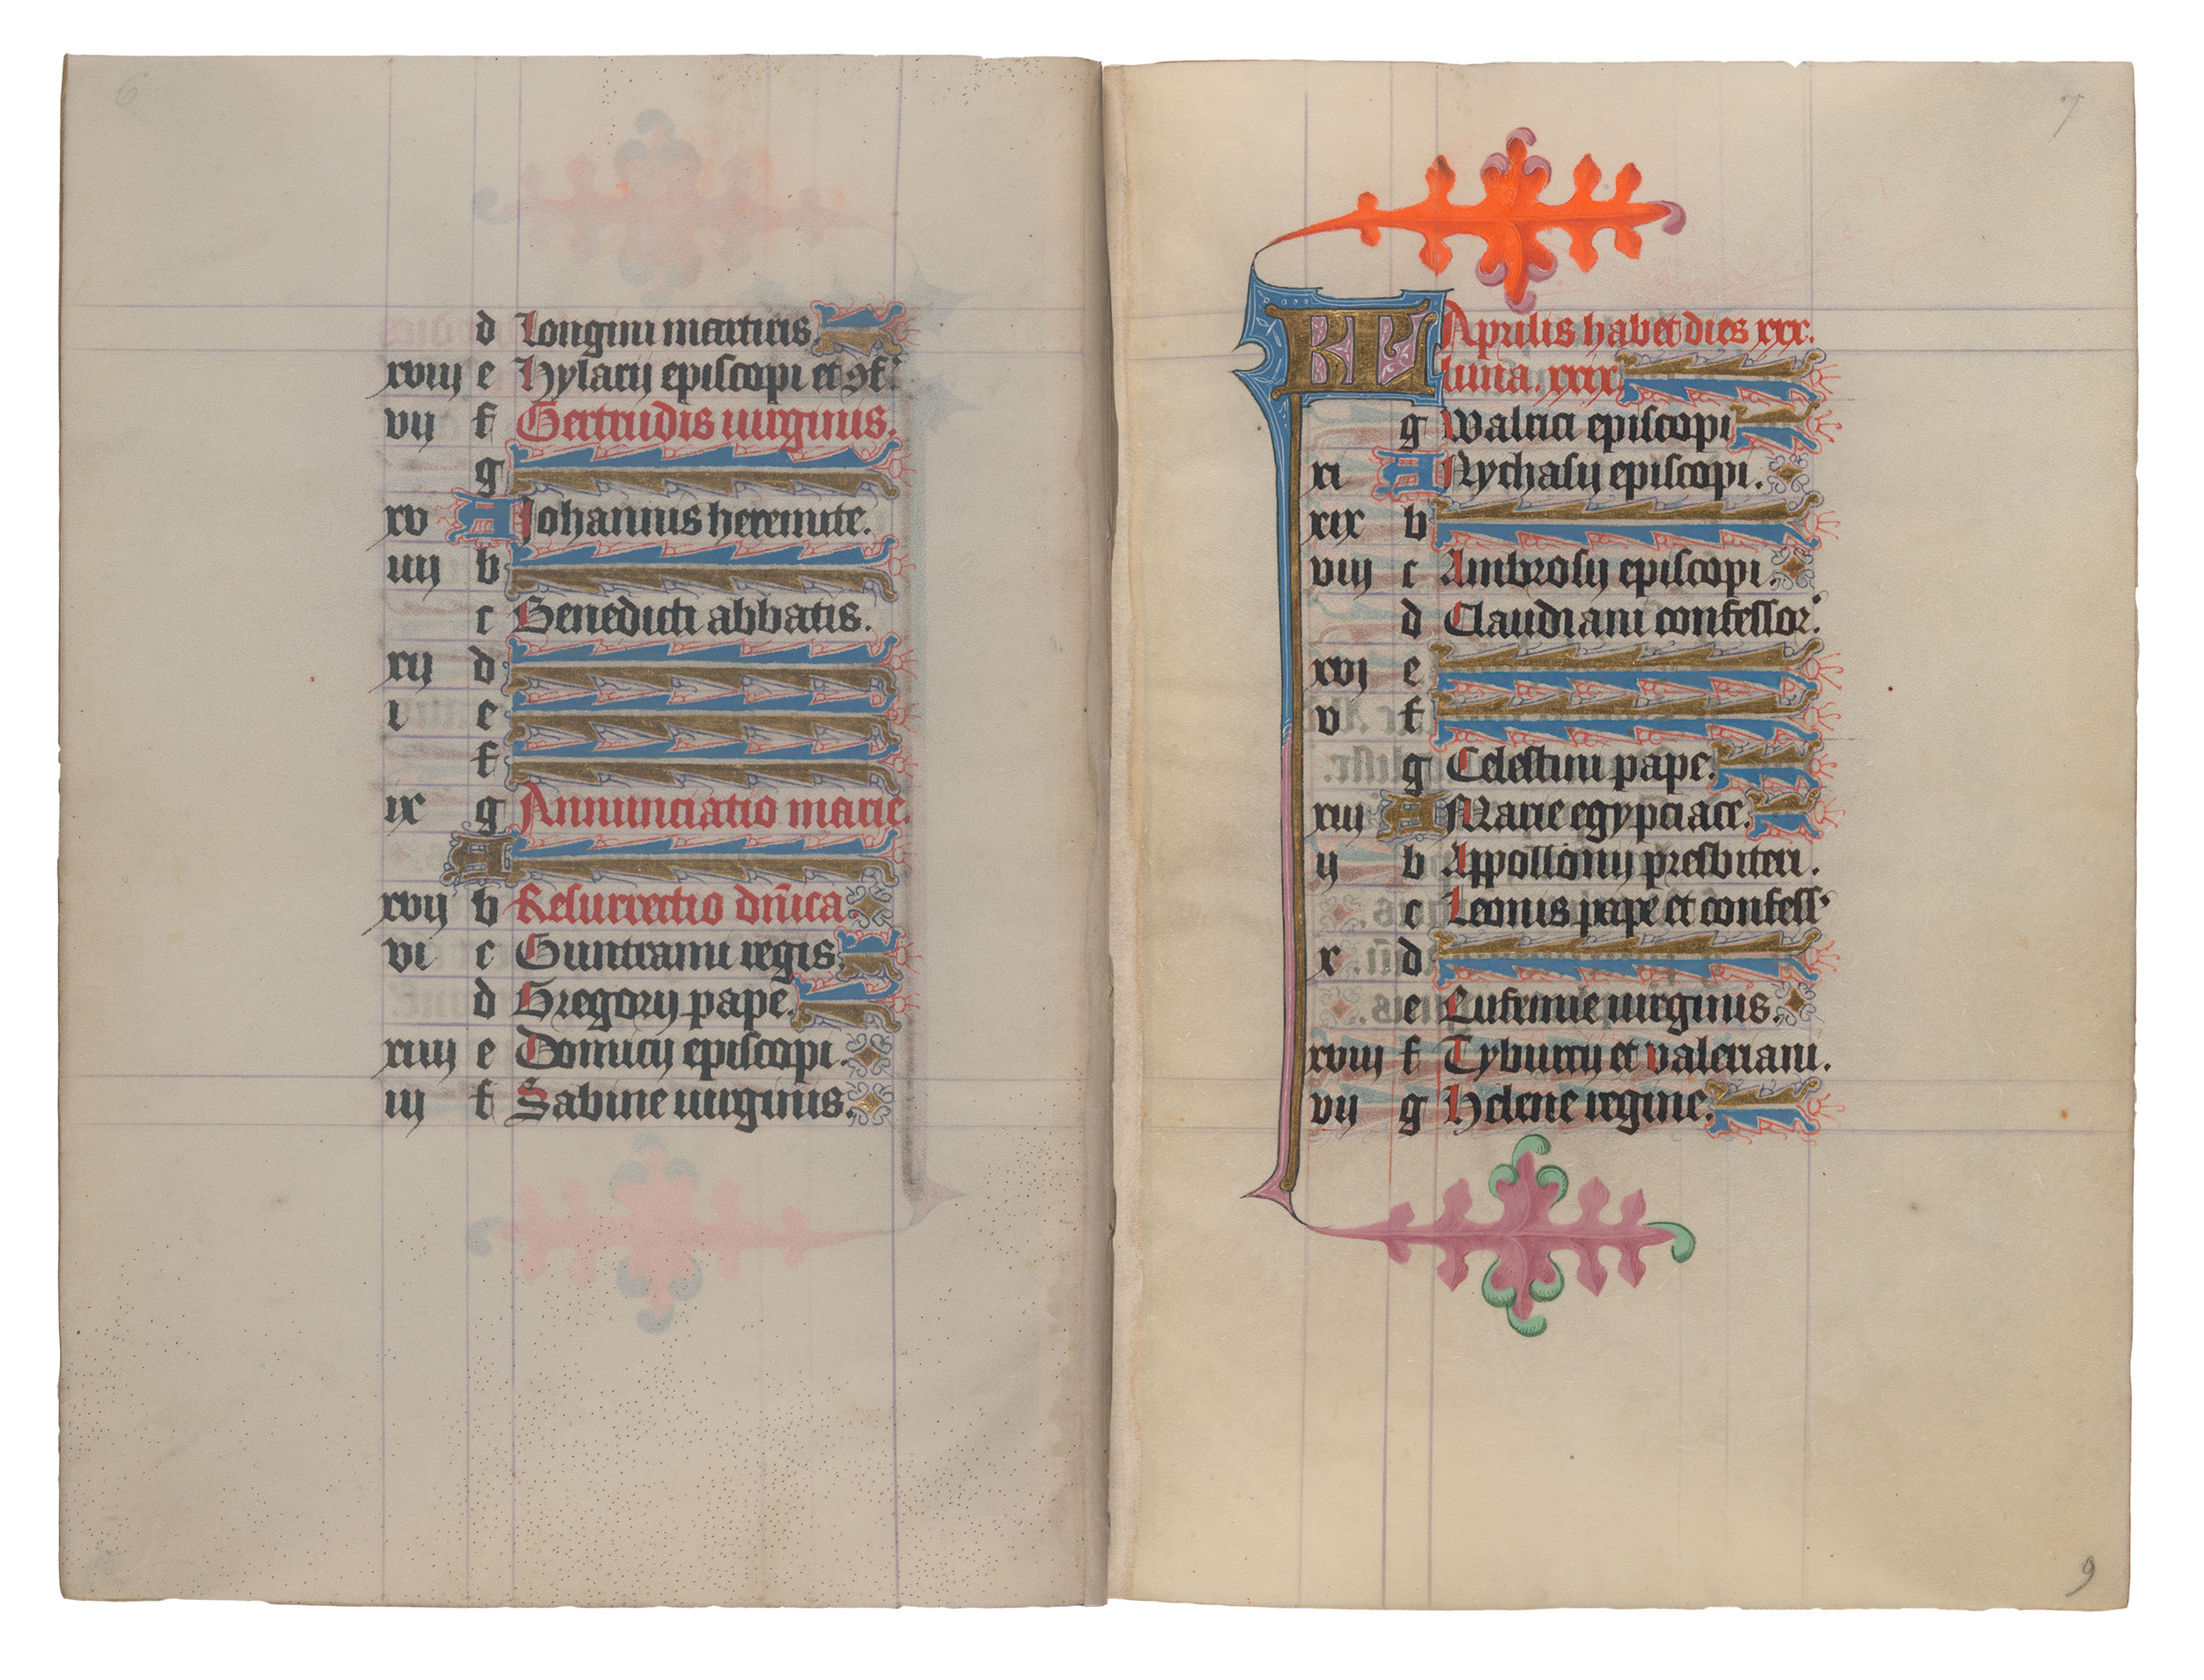 6
d Longini martiris.
xviij e Hylarij episcopi et ɔf.
vij f Gertrudis uirginis.
g
xv A Johannis heremite.
iiij b
c Benedicti abbatis.
xij d
i e
f
ix g Annunciatio marie.
A
xvij b Resurrectio dn̄ica.
vi c Guntranni regis.
d Gregorij pape.
xiiij e Domicij episcopi.
iij f Sabine uirginis.
7
KL Aprilis habet dies xxx.
luna. xxix.
g Walrici episcopi
xi A Nychasij episcopi.
xix b
viij c Ambrosij episcopi.
d Claudiani confessor.
xvj e
v f
g Celestini pape.
xiij A Marie egypciace.
ij b Appollonij presbiteri.
c Leonis pape et confess
x d
e Eufemie uirginis.
xviij f Tyburcij et valeriani.
vij g Helene regine.
9